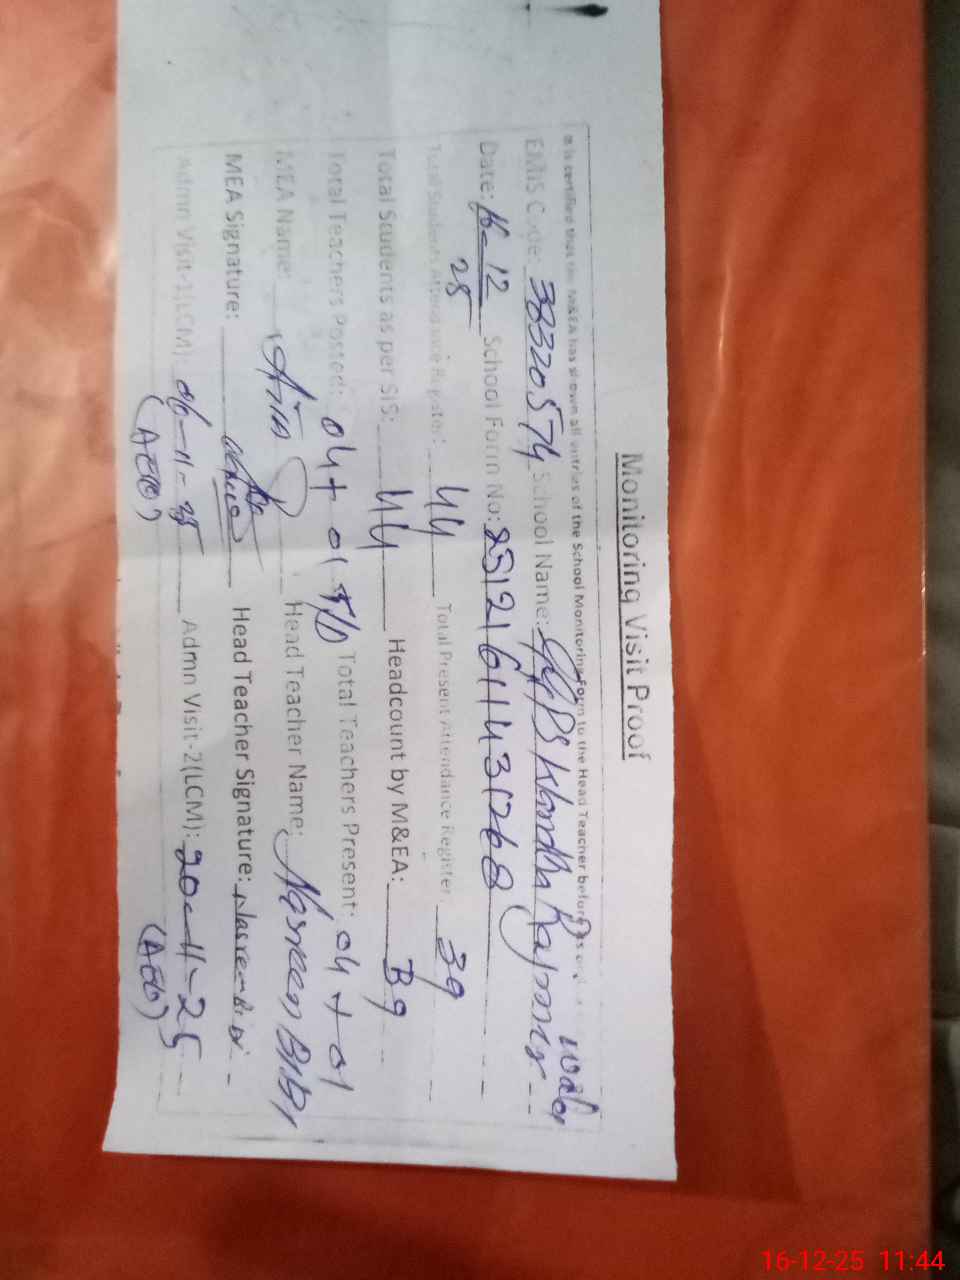 Monitoring Visit Proof
It is certified that the M&EA has shown all entries of the School Monitoring Form to the Head Teacher before
EMIS Code: 38320574 School Name: GGPS Khndha Rajpmir wala
Date: 16-12 25 School Form No: 251216114317268
Total Students Attendance Register: 44 Total Present Attendance Register 39
Total Students as per SIS: 44 Headcount by M&EA: 39
Total Teachers Posted: 04 + 01 Total Teachers Present: 04 + 01
MEA Name: Head Teacher Name: Nasreen Bibi
MEA Signature: Head Teacher Signature: Nasreen Bibi
Admn Visit-1(LCM): 06-11-25 Admn Visit-2(LCM): 20-11-25
(AEO) (AEO)
16-12-25 11:44